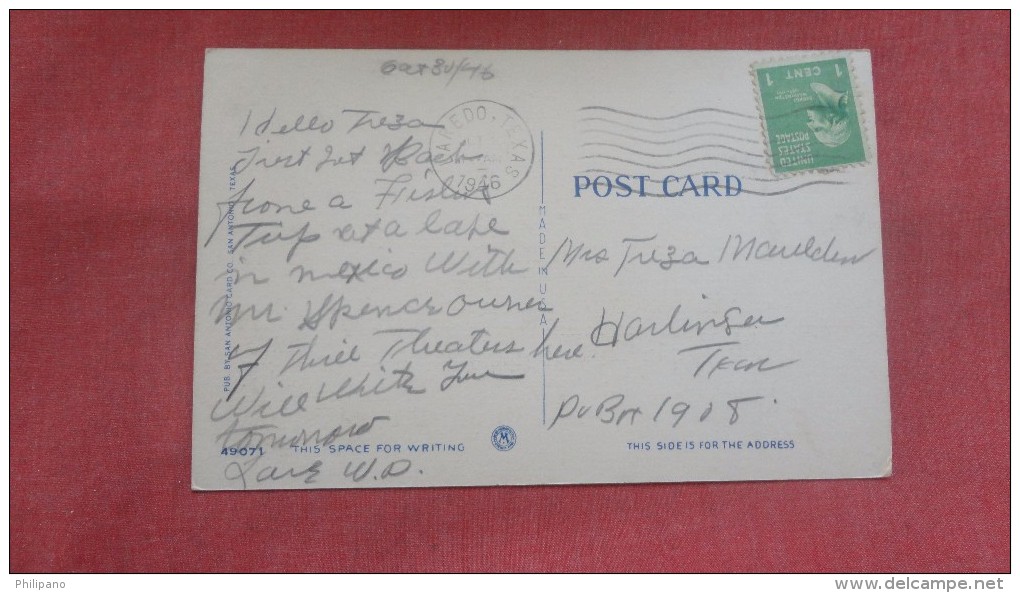 Hello Treza
Just got Back
from a Fishin
Trip at a lake
in mexico With
mr. Spence owner
of three Theaters here.
Will Write You
tomorrow
Love W.D.
LAREDO, TEXAS
1946
1 CENT 1
UNITED
STATES
POSTAGE
POST CARD
Mrs Treza Maulden
Harlingen
Texas
Po Box 1908.
MADE IN U.S.A.
PUB. BY SAN ANTONIO CARD CO. SAN ANTONIO, TEXAS
49071
THIS SPACE FOR WRITING
M
THIS SIDE IS FOR THE ADDRESS
Philipano
www.delcampe.net